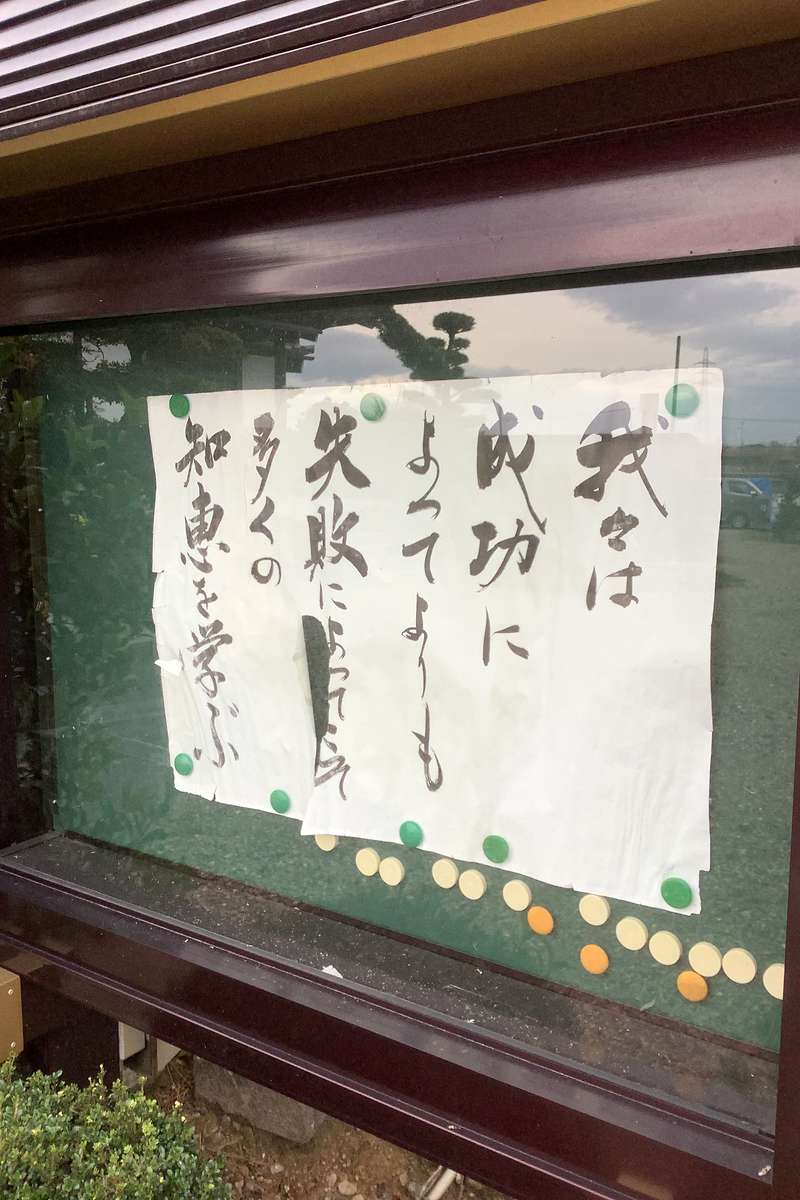 我々は
成功に
よってよりも
失敗によってこそ
多くの
知恵を学ぶ